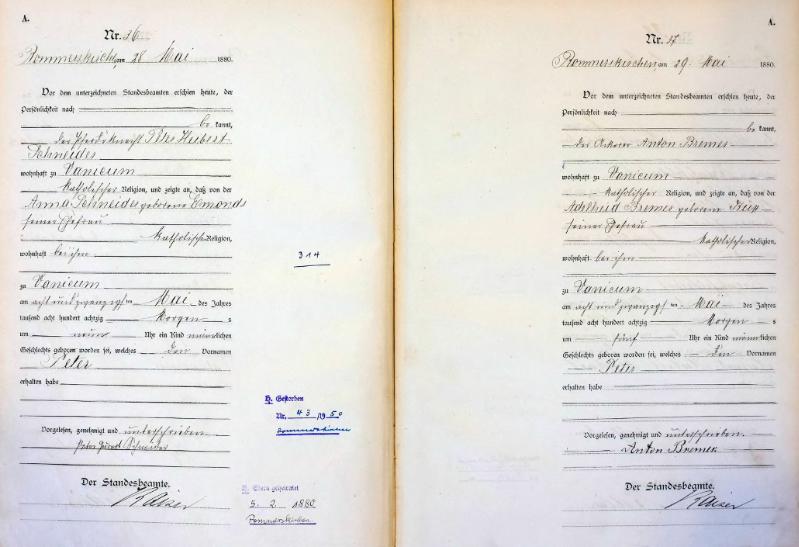 A.
Nr. 36
Rommerskirchen am 28 Mai 1880.
Vor dem unterzeichneten Standesbeamten erschien heute, der
Persönlichkeit nach
be kannt,
der Pferdeknecht Peter Hubert
Schneider
wohnhaft zu Vanicum
katholischer Religion, und zeigte an, daß von der
Anna Schneider geborene Esmonds
seiner Ehefrau
katholischer Religion,
wohnhaft bei ihm
zu Vanicum
am acht und zwanzigsten Mai des Jahres
tausend acht hundert achtzig Morgen s
um neun Uhr ein Kind männlichen
Geschlechts geboren worden sei, welches den Vornamen
Peter
erhalten habe
Vorgelesen, genehmigt und unterschrieben
Peter Schneider
Der Standesbeamte.
Kaiser
314
Gestorben
Nr. 43/1950
Rommerskirchen
Eltern geheiratet
5. 2. 1880
Rommerskirchen
A.
Nr. 37
Rommerskirchen am 29 Mai 1880.
Vor dem unterzeichneten Standesbeamten erschien heute, der
Persönlichkeit nach
be kannt,
der Ackerer Anton Bremer
wohnhaft zu Vanicum
katholischer Religion, und zeigte an, daß von der
Adelheid Bremer geborene
seiner Ehefrau
katholischer Religion,
wohnhaft bei ihm
zu Vanicum
am acht und zwanzigsten Mai des Jahres
tausend acht hundert achtzig Morgen s
um fünf Uhr ein Kind männlichen
Geschlechts geboren worden sei, welches den Vornamen
Peter
erhalten habe
Vorgelesen, genehmigt und unterschrieben
Anton Bremer
Der Standesbeamte.
Kaiser